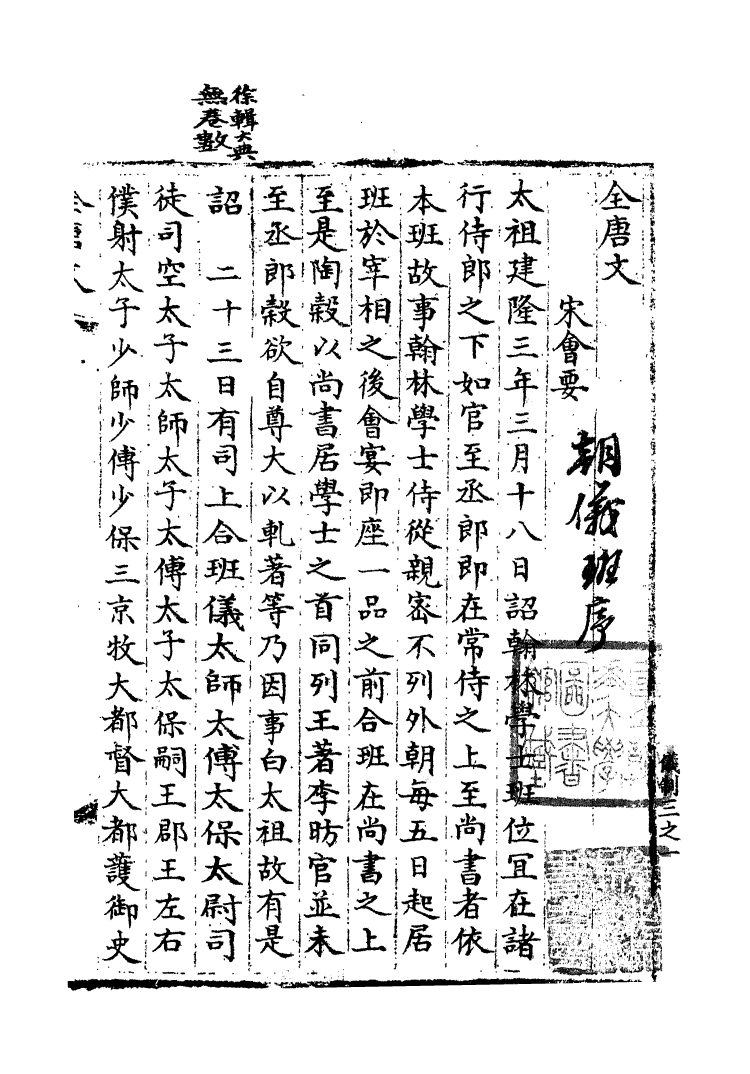 徐輯大典
無卷數
全唐文
宋會要
朝儀班序
太祖建隆三年三月十八日詔翰林學士班位冝在諸
行侍郎之下如官至丞郎即在常侍之上至尚書者依
本班故事翰林學士侍從親宻不列外朝每五日起居
班於宰相之後會宴即座一品之前合班在尚書之上
至是陶穀以尚書居學士之首同列王著李昉官並未
至丞郎穀欲自尊大以軋著等乃因事白太祖故有是
詔　二十三日有司上合班儀太師太傅太保太尉司
徒司空太子太師太子太傅太子太保嗣王郡王左右
僕射太子少師少傅少保三京牧大都督大都護御史
全唐文
儀制三之一